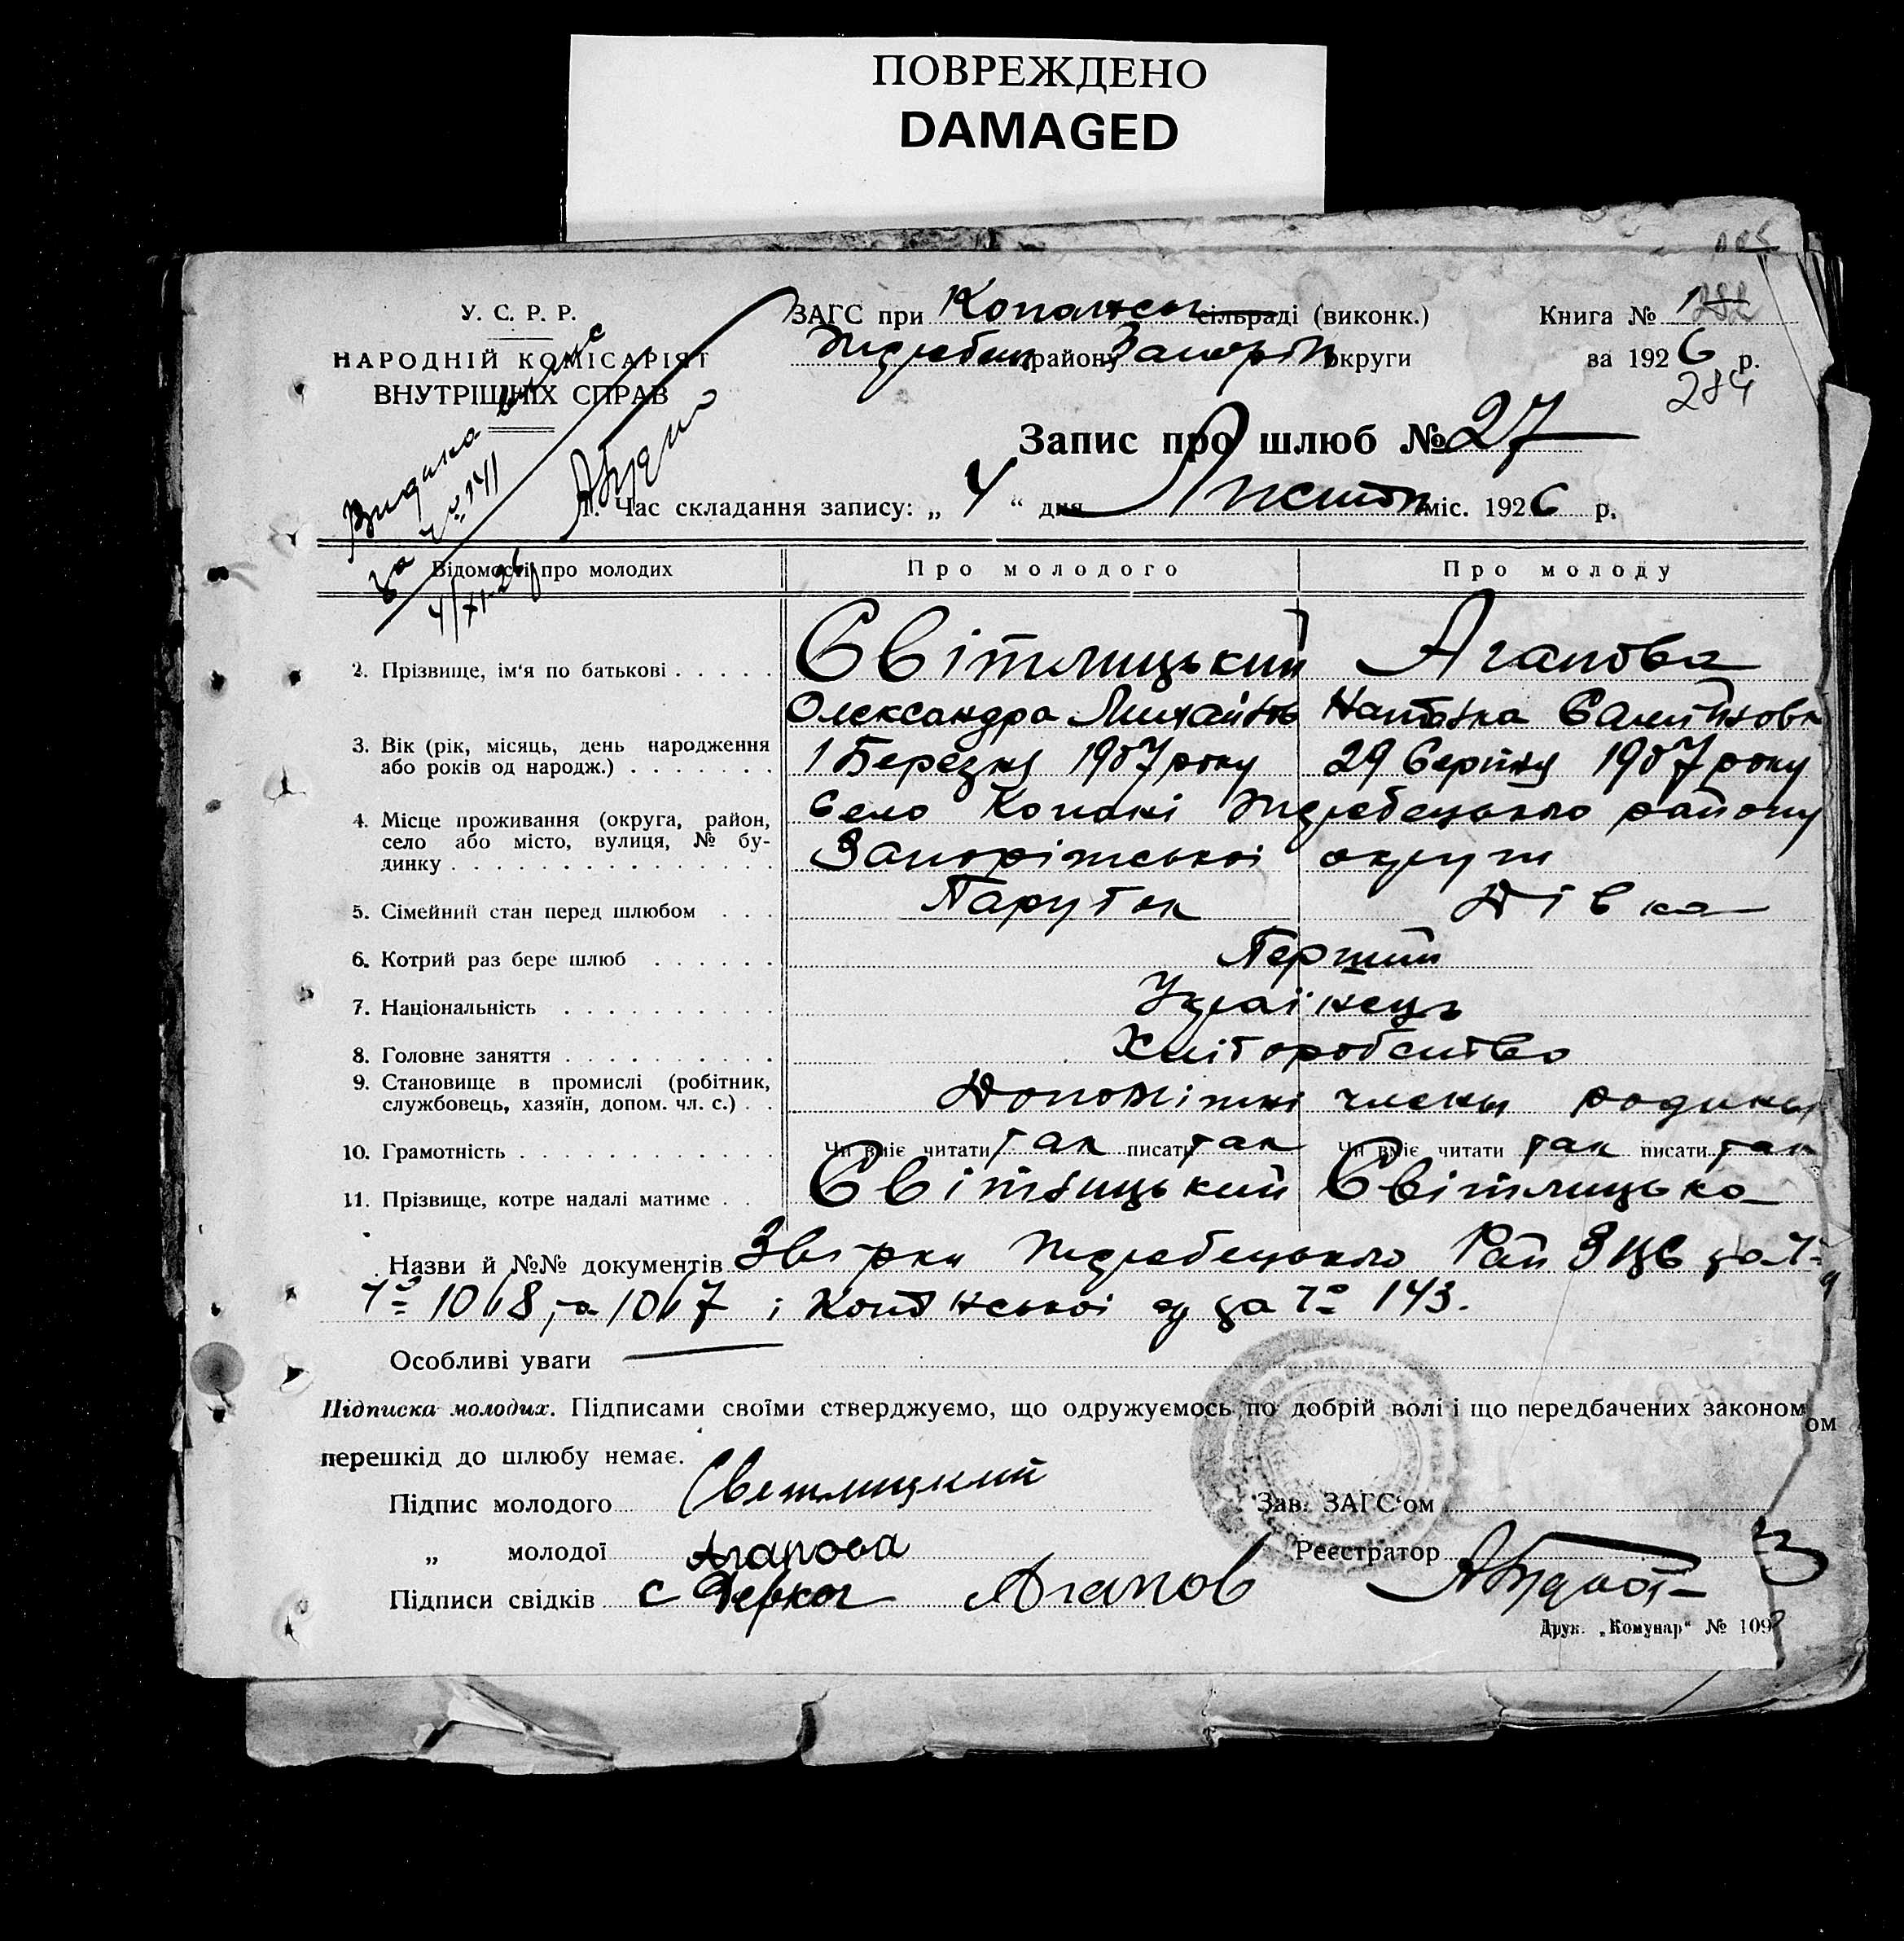 ПОВРЕЖДЕНО
DAMAGED
У. С. Р. Р.
НАРОДНІЙ КОМІСАРІЯТ
ВНУТРІШНІХ СПРАВ
ЗАГС при Копанськ сільраді (виконк.)
Жеребец району Запоріж округи
Книга № 1
за 1926 р.
284
Запис про шлюб № 27
Видана
за № 141
4/XI-26
1. Час складання запису: „ 4 “ дня Листоп міс. 1926 р.
Відомості про молодих
Про молодого
Про молоду
2. Прізвище, ім'я по батькові
Світлицький
Агапова
Олександра Михайлов
Наталка Самійловн
3. Вік (рік, місяць, день народження або років од народж.)
1 Березня 1907 року
29 Серпня 1907 року
4. Місце проживання (округа, район, село або місто, вулиця, № будинку
Село Копані Жеребецького району
Запоріжської округи
5. Сімейний стан перед шлюбом
Парубок
Дівка
6. Котрий раз бере шлюб
Перший
7. Національність
Українець
8. Головне заняття
Хліборобство
9. Становище в промислі (робітник, службовець, хазяїн, допом. чл. с.)
Допоміжні члены родины
10. Грамотність
Чи вміє читати так писати так
Чи вміє читати так писати так
11. Прізвище, котре надалі матиме
Світлицький
Світлицька
Назви й №№ документів Звірки Жеребецького Рай за
№ 1018, 1017 і Копанської за № 143.
Особливі уваги
Підписка молодих. Підписами своїми стверджуємо, що одружуємось по добрій волі і що передбачених законом
ом
перешкід до шлюбу немає.
Підпис молодого Светлицкий
Зав. ЗАГС'ом
„ молодої Агапова
Реєстратор
Підписи свідків Агапов
Друк. „Комунар“ № 109